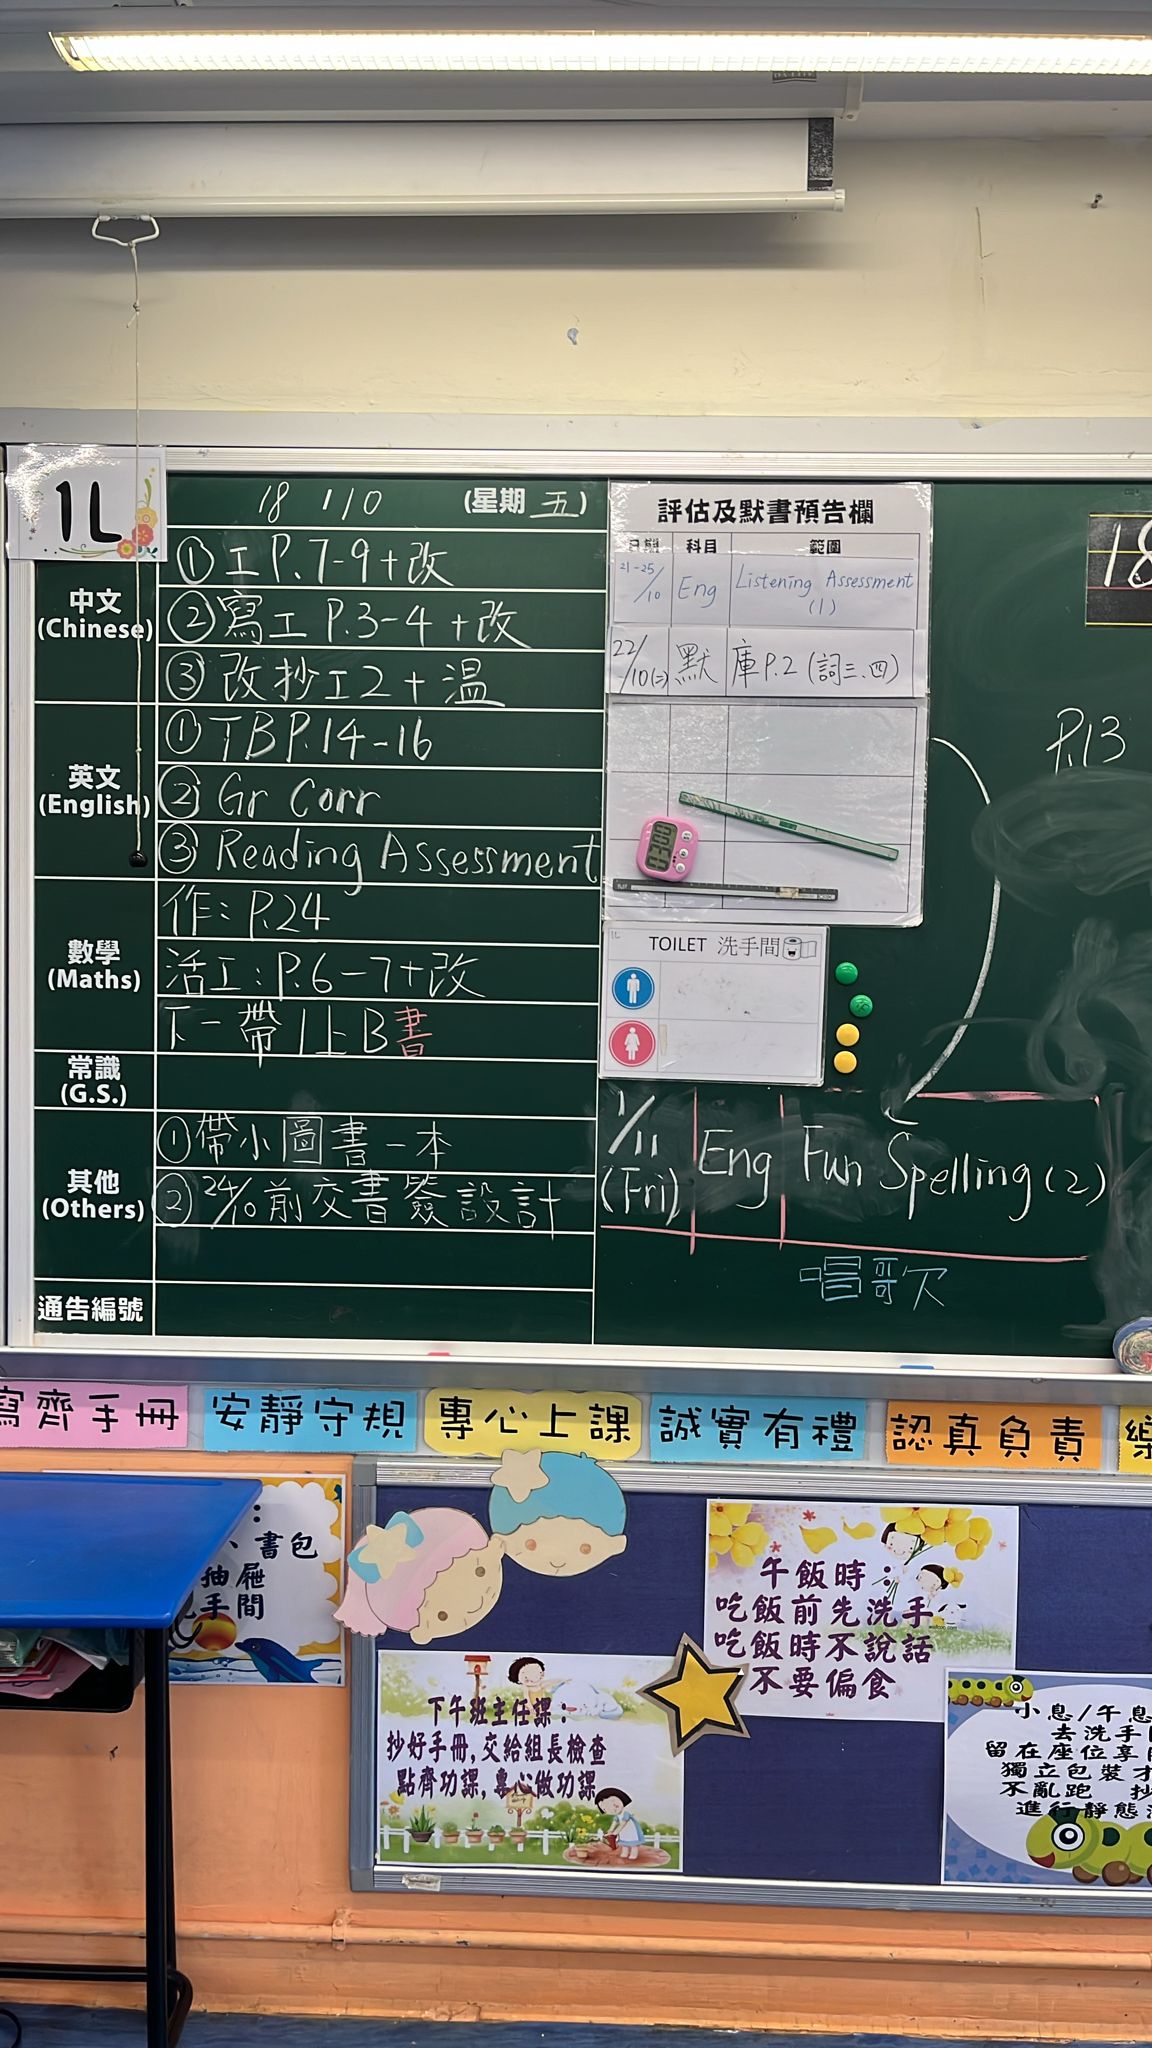 1L
18 / 10 (星期 五)
中文
(Chinese)
① 工 P.7-9 + 改
② 寫工 P.3-4 + 改
③ 改抄工2 + 溫
英文
(English)
① TB P.14-16
② Gr Corr
③ Reading Assessment
數學
(Maths)
作：P.24
活工：P.6-7+改
下一帶 1上B書
常識
(G.S.)
其他
(Others)
① 帶小圖書一本
② 24/10前交書簽設計
通告編號
評估及默書預告欄
日期 科目 範圍
21-25/10 Eng Listening Assessment (1)
22/10(二) 默 庫P.2 (詞三、四)
TOILET 洗手間
18
P.13
1/11 (Fri) Eng Fun Spelling (2)
唱歌
寫齊手冊
安靜守規
專心上課
誠實有禮
認真負責
樂
、書包
抽屜
手間
午飯時：
吃飯前先洗手
吃飯時不說話
不要偏食
下午班主任課：
抄好手冊,交給組長檢查
點齊功課,專心做功課
小息/午息
去洗手
留在座位享
獨立包裝
不亂跑 抄
進行靜態